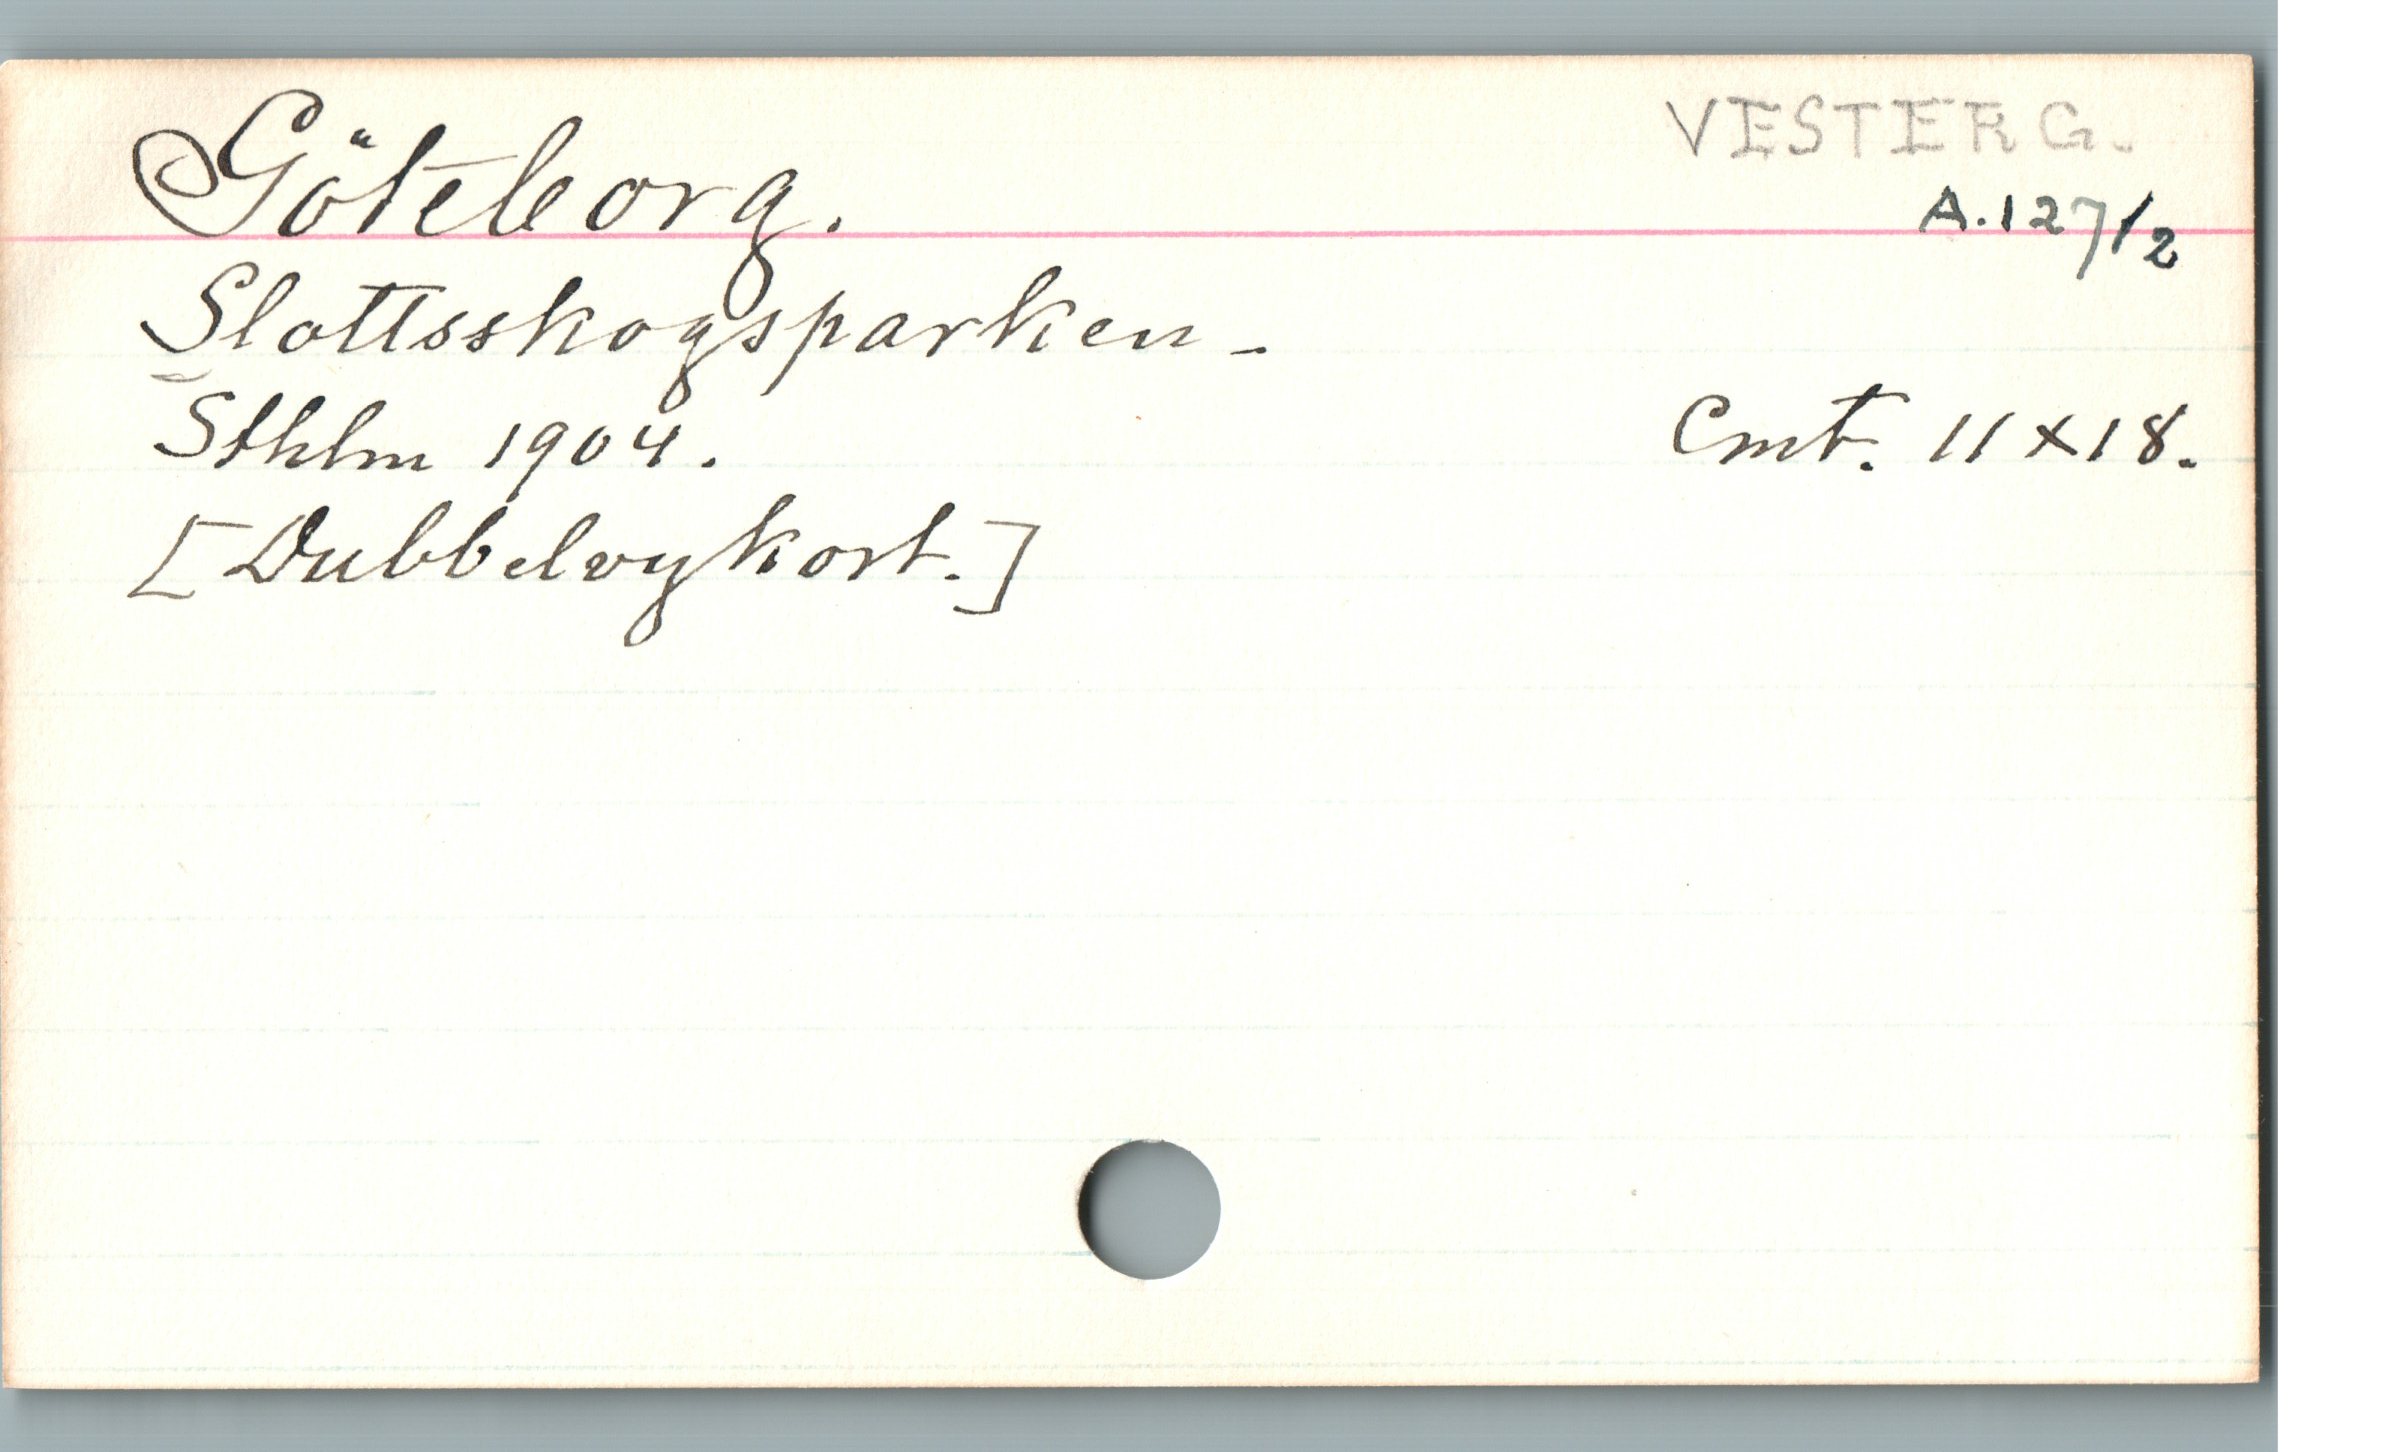 Göteborg.
VESTERG.
A.127/2
Slottsskogsparken.
Sthlm 1904.
Cmt. 11 x 18.
[Dubbelvykort.]